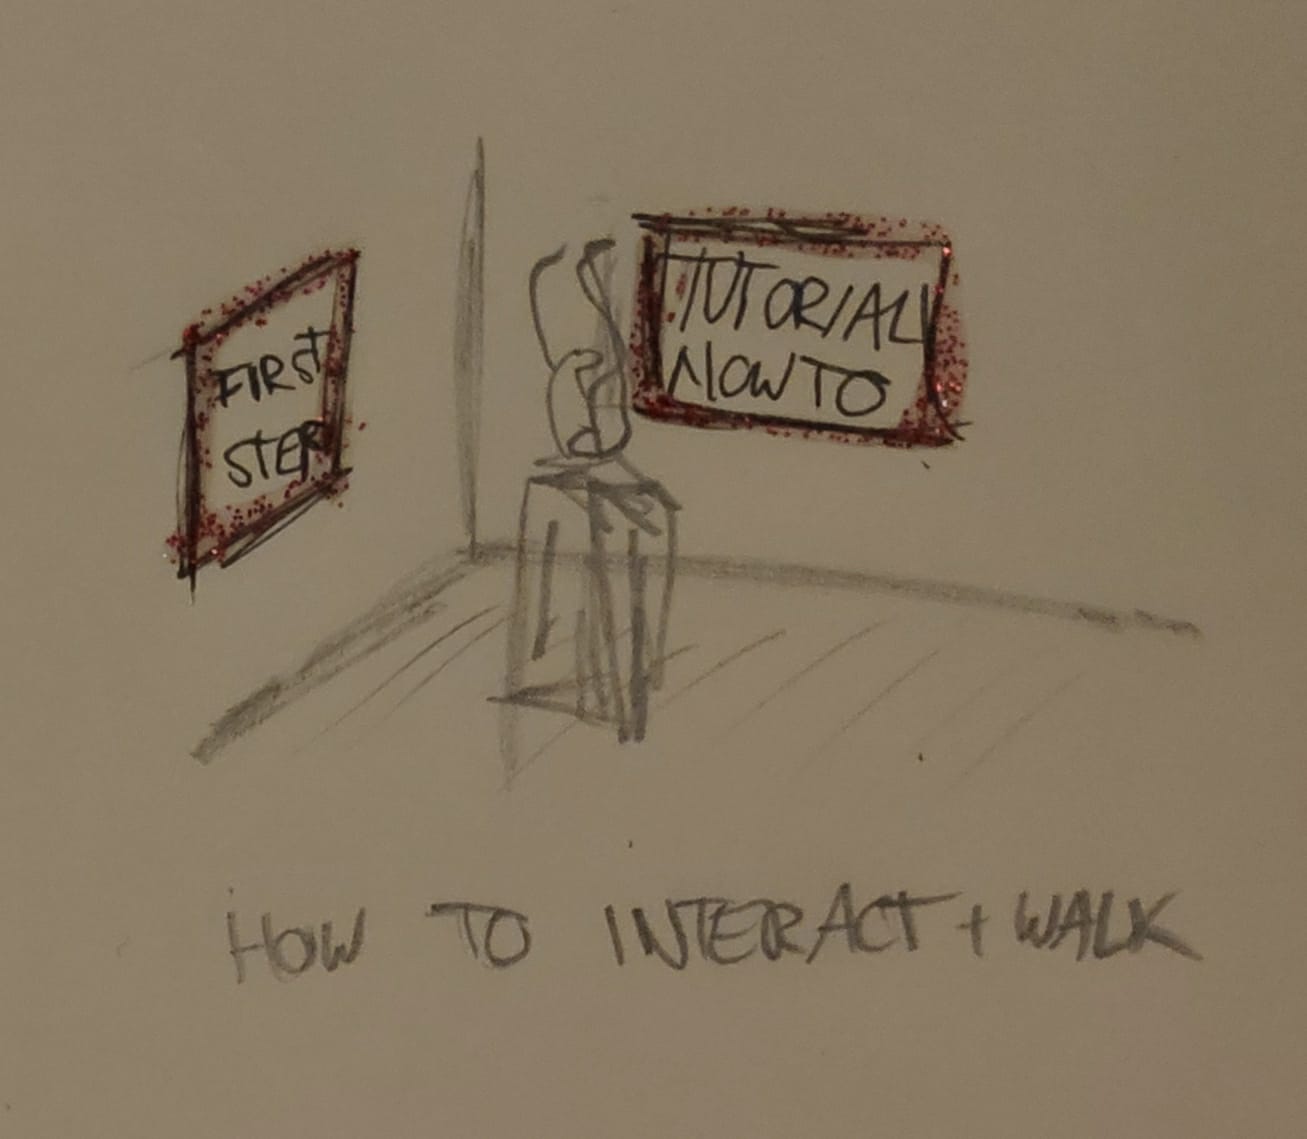 FIRST
STEP
TUTORIAL
HOW TO
HOW TO INTERACT + WALK